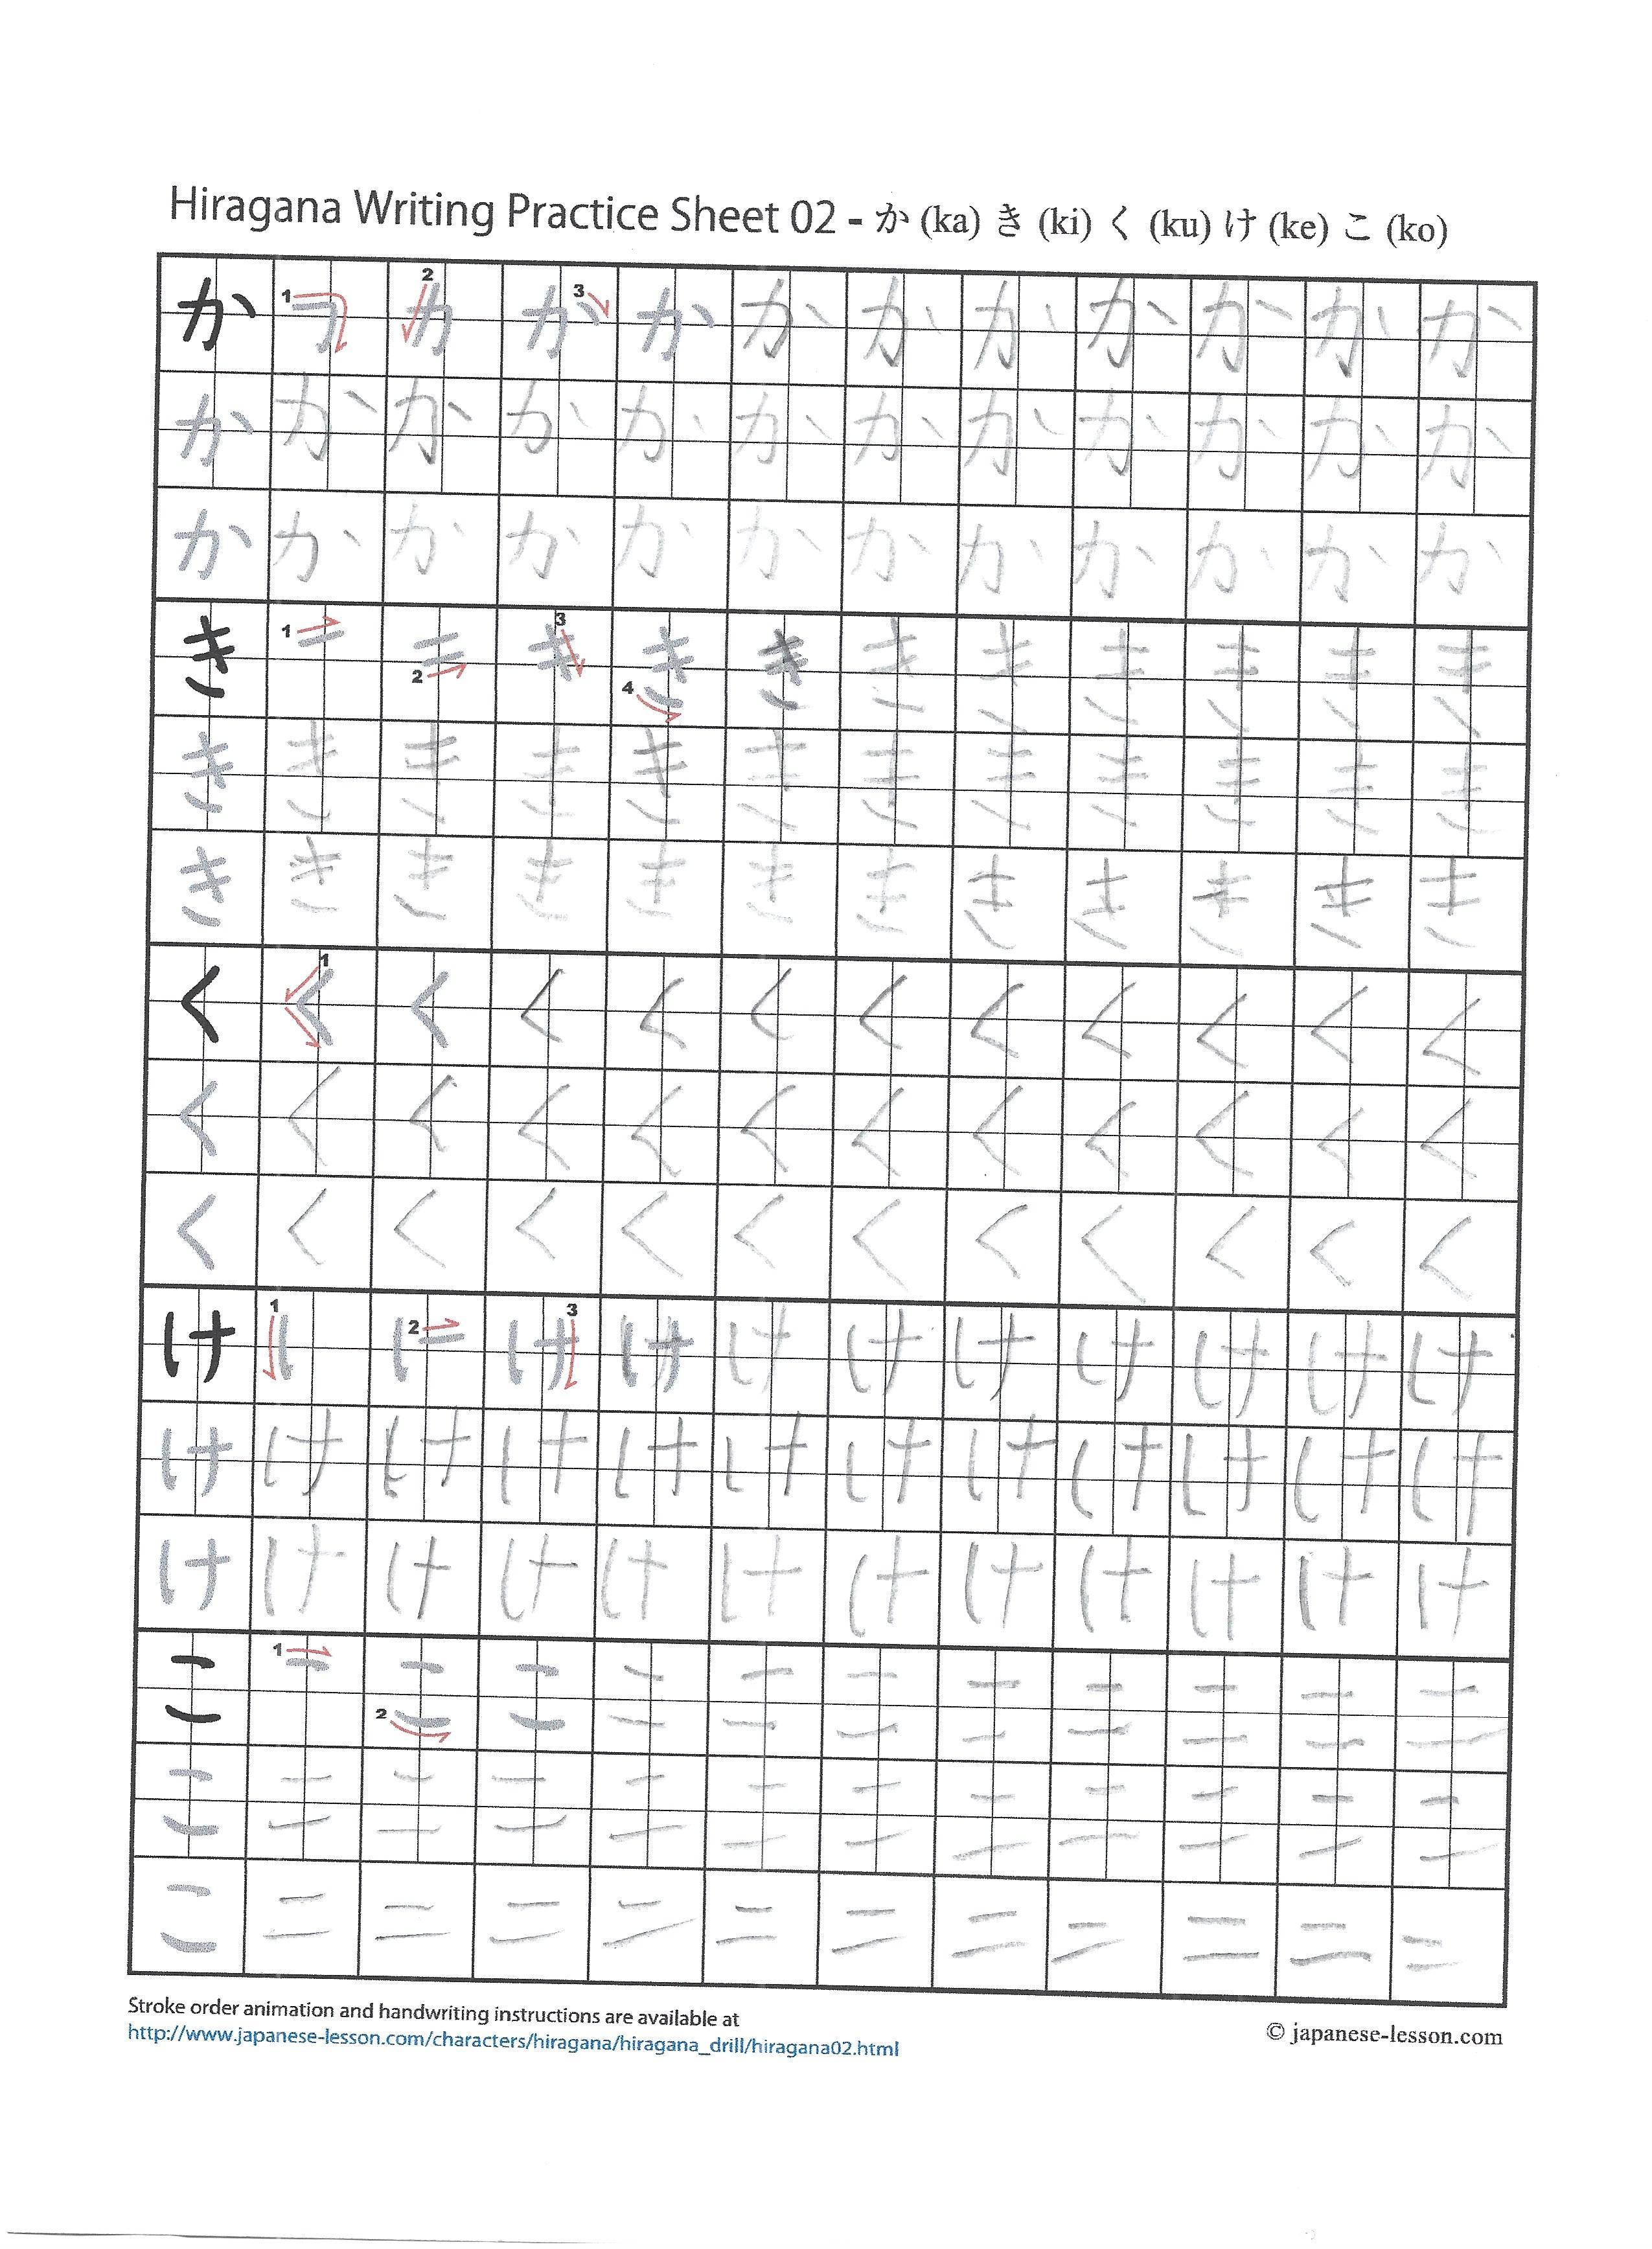 Hiragana Writing Practice Sheet 02 - か (ka) き (ki) く (ku) け (ke) こ (ko)
か 1 2 3 か か か か か か か か か
か か か か か か か か か か か か
か か か か か か か か か か か か
き 1 2 3 4 き き き き き き き き
き き き き き き き き き き き き
き き き き き き き き き き き き
く 1 く く く く く く く く く く く
く く く く く く く く く く く く
く く く く く く く く く く く く
け 1 2 3 け け け け け け け け け
け け け け け け け け け け け け
け け け け け け け け け け け け
こ 1 2 こ こ こ こ こ こ こ こ こ こ
こ こ こ こ こ こ こ こ こ こ こ こ
こ こ こ こ こ こ こ こ こ こ こ こ
Stroke order animation and handwriting instructions are available at
http://www.japanese-lesson.com/characters/hiragana/hiragana_drill/hiragana02.html
© japanese-lesson.com